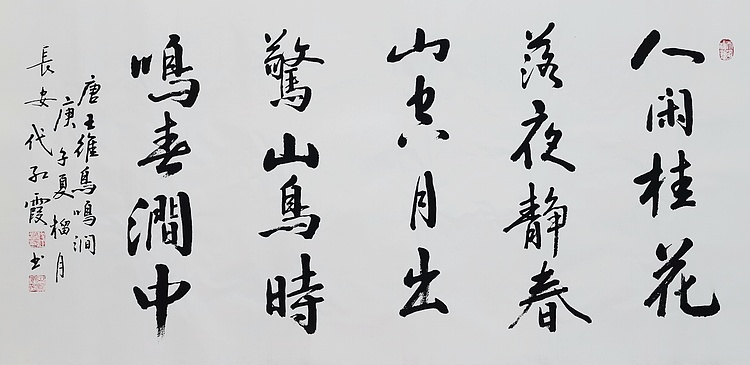 人闲桂花
落夜静春
山空月出
驚山鳥時
鳴春澗中
唐王維鳥鳴澗
庚子夏榴月
長安代红霞书